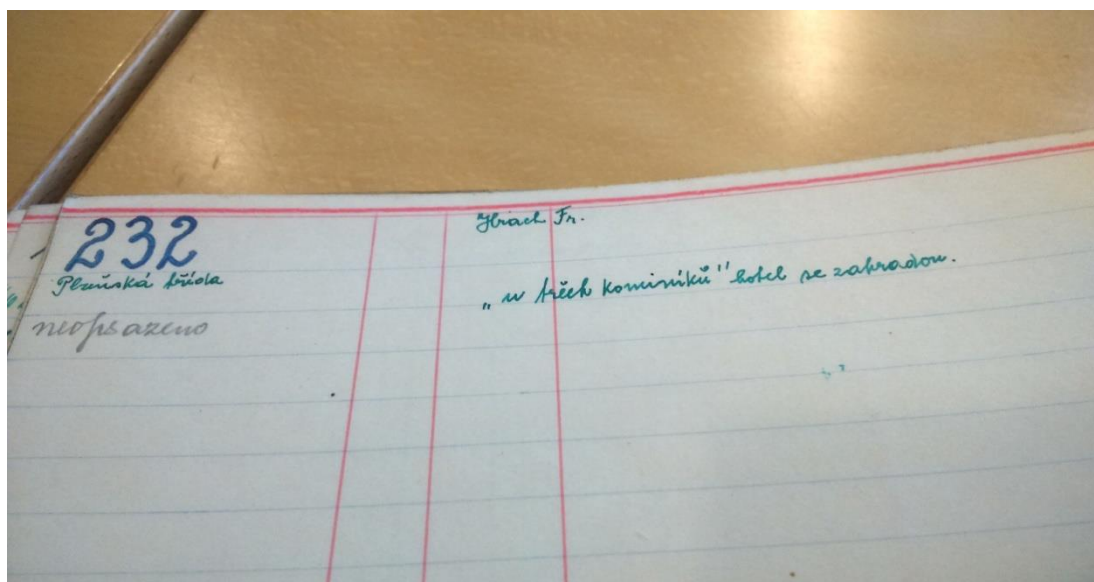 232
Plzeňská třída
neobsazeno
Fr.
„u třěch kominíků" hotel se zahradou.